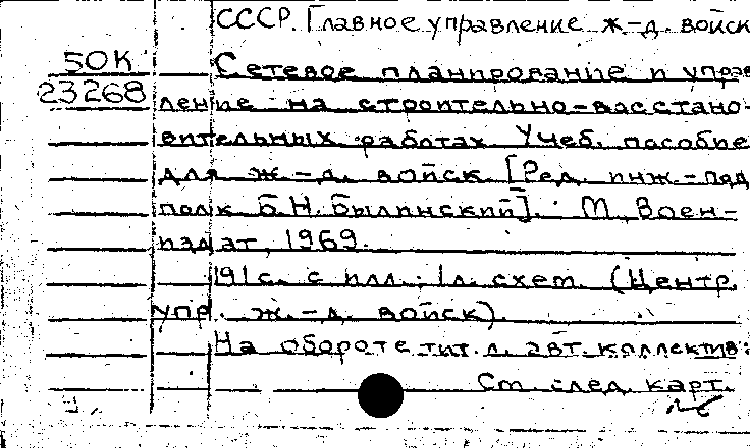 СССР. Главное управление ж-д. войск
50К
Сетевое планирование и управ
23268
ление на строительно-восстано-
вительных работах. Учеб. пособие
для ж.-д. войск. [Ред. инж.-под
полк. Б.Н. Былинский]. М., Воен-
издат, 1969.
191 с. с илл.; 1 л. схем. (Центр.
упр. ж.-д. войск).
На обороте тит. л. авт. коллектив:
См. след. карт.